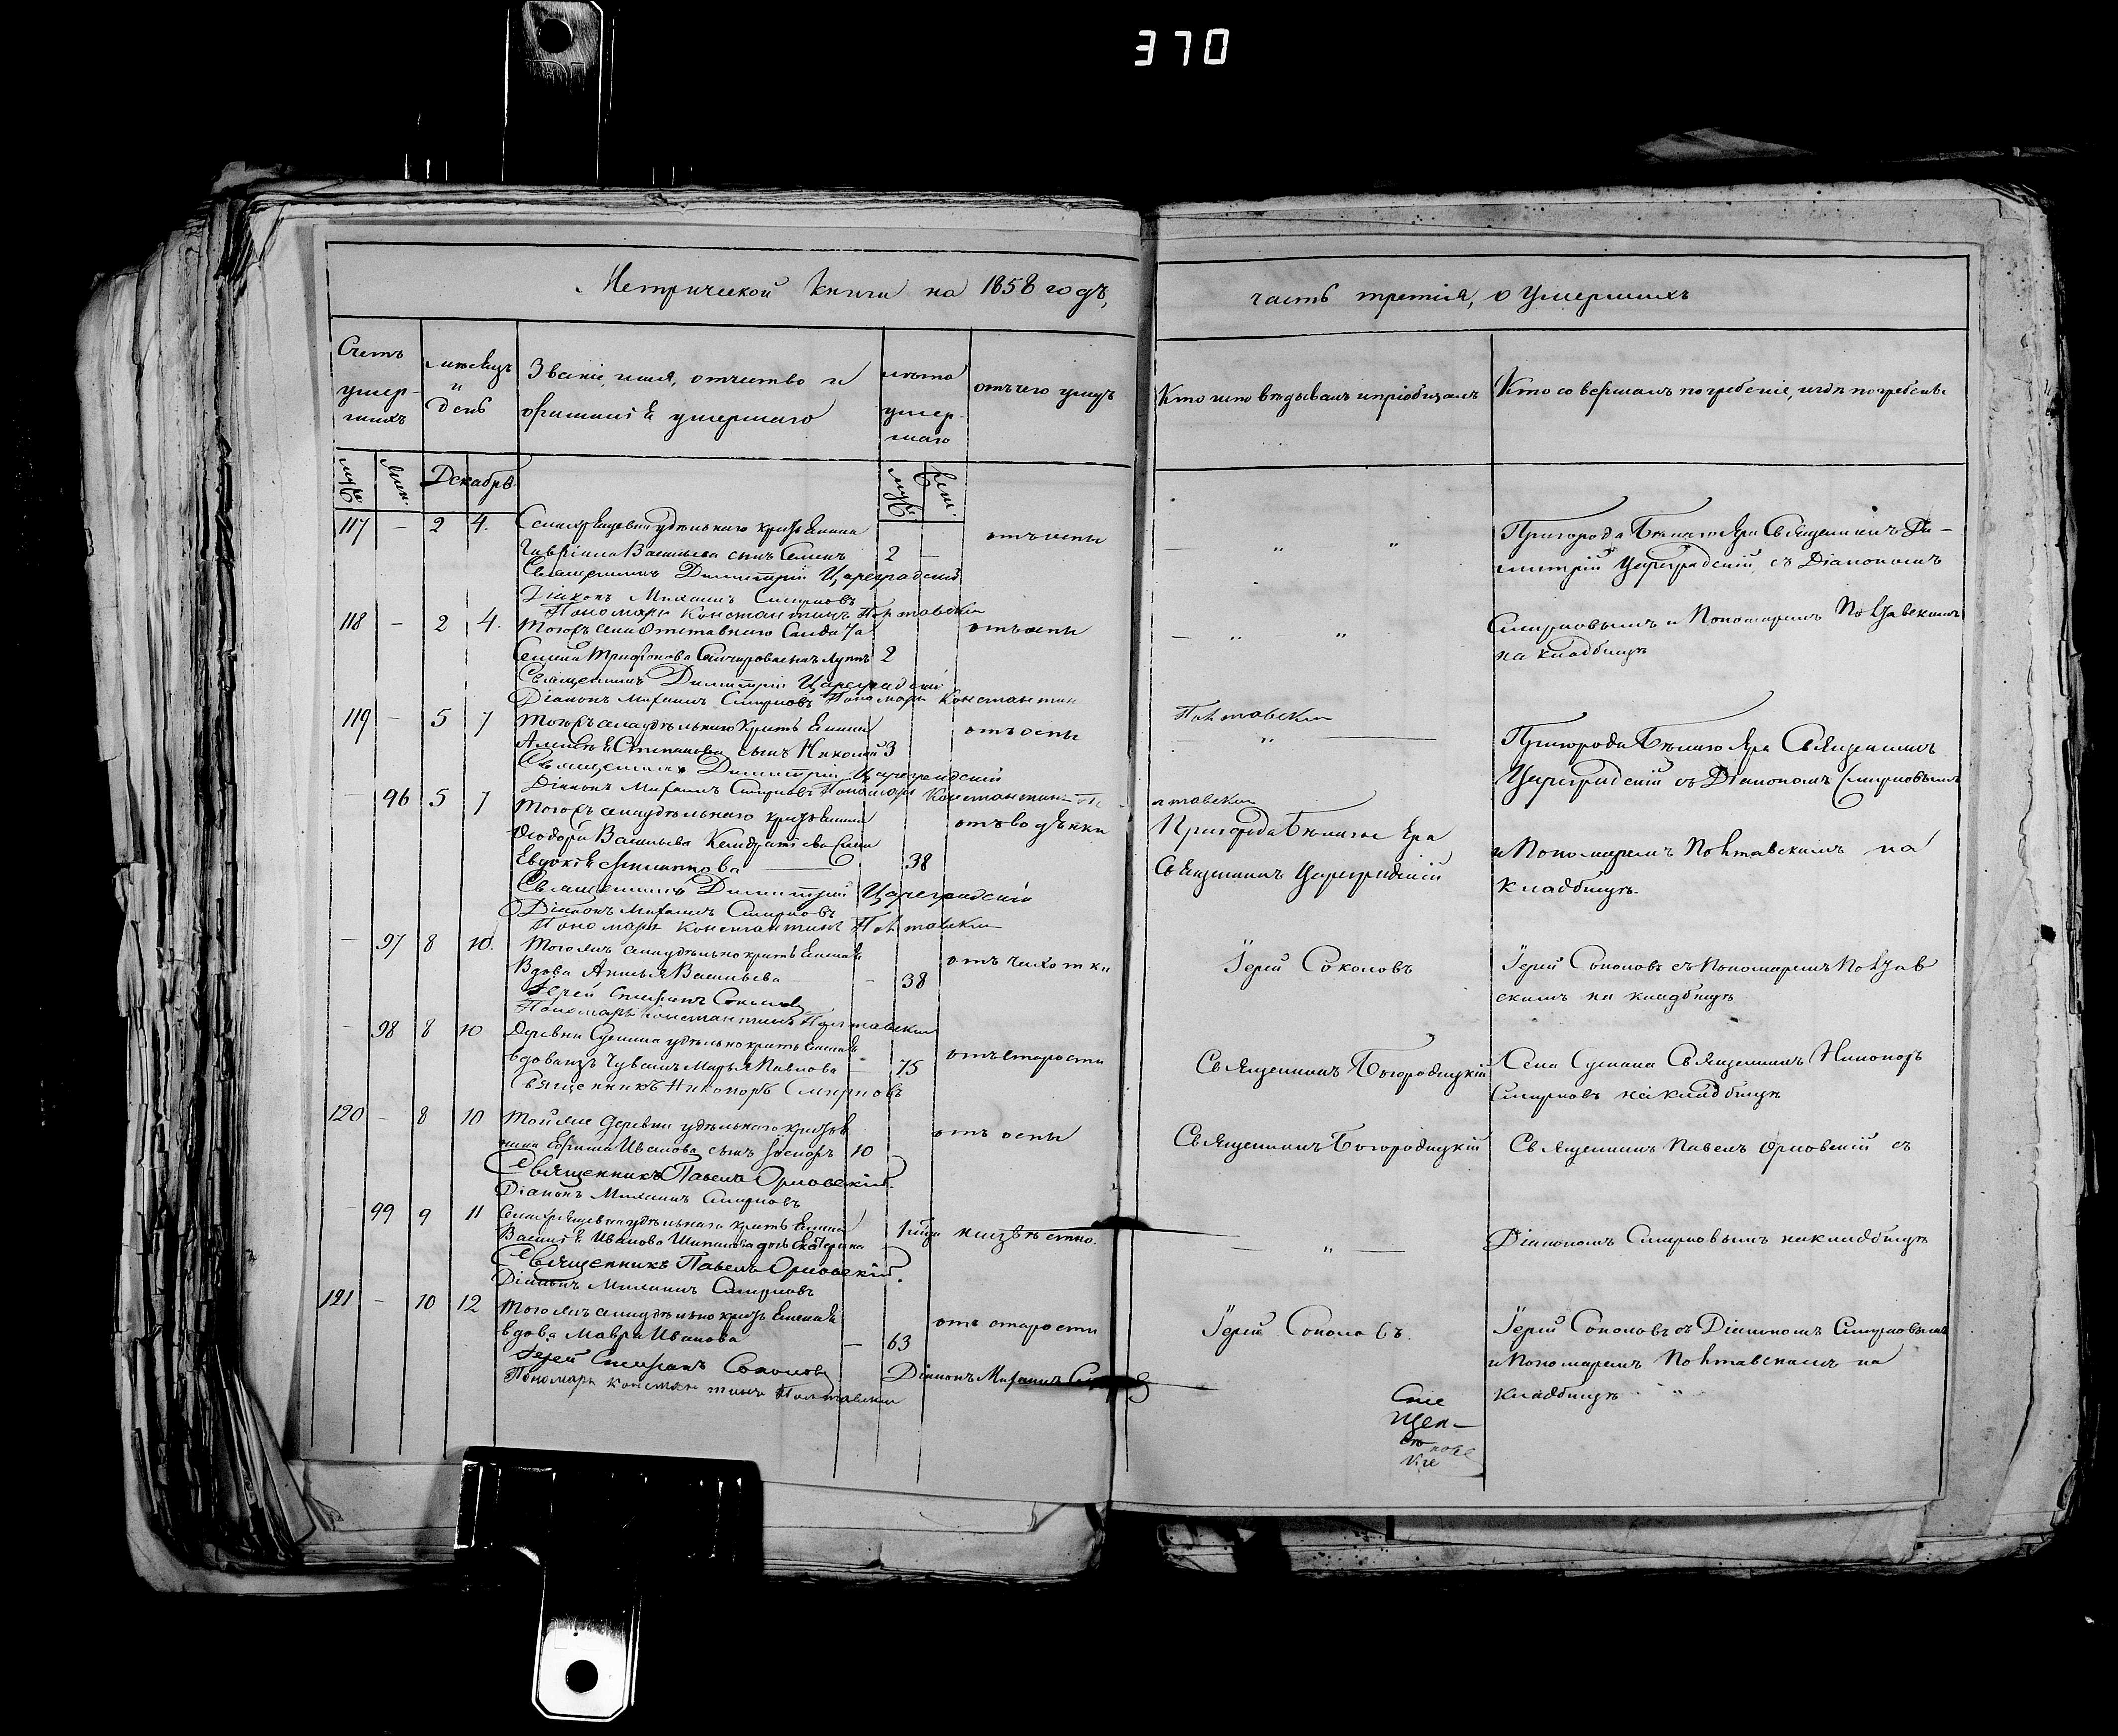 370
Метрической книги на 1858 годъ,
часть третія, о умершихъ
Счетъ умер-шихъ
мѣсяцъ и день
Званіе, имя, отчество и фамилія умершаго
лѣта умер-шаго
отъ чего умеръ
Кто исповѣдывалъ и пріобщалъ
Кто совершалъ погребеніе, и гдѣ погребены
муж. жен. Декабрь муж. жен.
117 — 2 4.
удѣльнаго крестьянина
Гавріила Васильева сынъ Семенъ 2 —
отъ оспы
Священникъ Димитрій Цареградскій
Діаконъ Михаилъ Смирновъ
Пономарь Константинъ Полтавскій
— „ „
Пригорода Бѣлаго Яра Священникъ Ди-
митрій Цареградскій съ Діакономъ
Смирновымъ и Пономаремъ Полтавскимъ
на кладбищѣ
118 — 2 4.
Тогожъ села Отставнаго Солдата
Трифонова 2
отъ оспы
Священникъ Димитрій Цареградскій
Діаконъ Михаилъ Смирновъ Пономарь Константинъ
Полтавскій
— „ „
119 — 5 7
Тогожъ села удѣльнаго Крестьянина
Алексѣя Степанова сынъ Николай 3
отъ оспы
Священникъ Димитрій Цареградскій
Діаконъ Михаилъ Смирновъ Пономарь Константинъ По
лтавскій
— „ —
Пригорода Бѣлаго Яра Священникъ
Цареградскій съ Діакономъ Смирновымъ
и Пономаремъ Полтавскимъ на
кладбищѣ.
— 96 5 7
Тогожъ села удѣльнаго крестьянина
Ѳедора Васильева Кондратьева жена
Евдокія Филиппова — 38
отъ водянки
Пригорода Бѣлаго Яра
Священникъ Цареградскій
Священникъ Димитрій Цареградскій
Діаконъ Михаилъ Смирновъ
Пономарь Константинъ Полтавскій
— 97 8 10.
Тогожъ села удѣльнокрестьянская
Вдова Анисья Васильева — 38
отъ чахотки
Іерей Соколовъ
Іерей Соколовъ съ Пономаремъ Полтав
скимъ на кладбищѣ
Іерей Стефанъ Соколовъ
Пономарь Константинъ Полтавскій
— 98 8 10
Деревни удѣльнокрестьянская
вдова изъ Чувашъ Марья Павлова — 75
отъ старости
Священникъ Богородицкій
Села Священникъ Никаноръ
Смирновъ на кладбищѣ
Священникъ Никаноръ Смирновъ
120 — 8 10
Той же деревни удѣльнаго крестья
нина Ефима Иванова сынъ 10
отъ оспы
Священникъ Богородицкій
Священникъ Павелъ Орловскій съ
Священникъ Павелъ Орловскій.
Діаконъ Михаилъ Смирновъ
— 99 9 11
удѣльнаго крестьянина
Василія Иванова дочь Екатерина
неизвѣстно.
— „ —
Діакономъ Смирновымъ на кладбищѣ
Священникъ Павелъ Орловскій.
Діаконъ Михаилъ Смирновъ
121 — 10 12
Тогожъ села удѣльнокрестьянская
вдова Мавра Иванова — 63
отъ старости
Іерей Соколовъ.
Іерей Соколовъ съ Діакономъ Смирновымъ
и Пономаремъ Полтавскимъ на
кладбищѣ „
Іерей Стефанъ Соколовъ
Діаконъ Михаилъ
Пономарь Константинъ Полтавскій